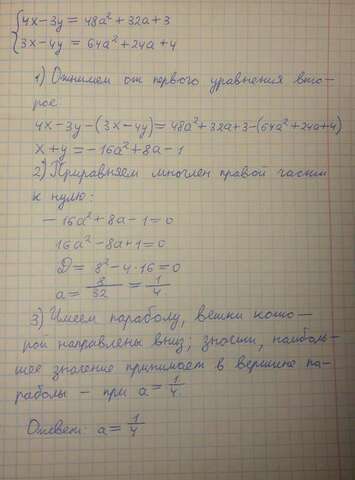 {4x-3y=48a²+32a+3
{3x-4y=64a²+24a+4
1) Отнимем от первого уравнения вто-
рое
4x-3y-(3x-4y)=48a²+32a+3-(64a²+24a+4)
x+y=-16a²+8a-1
2) Приравняем многлен правой части
к нулю:
-16a²+8a-1=0
16a²-8a+1=0
D=8²-4·16=0
a=8/32=1/4
3) Имеем параболу, ветки кото-
рой направлены вниз; значит, наиболь-
шее значение принимает в вершине па-
раболы - при a=1/4.
Ответ: a=1/4